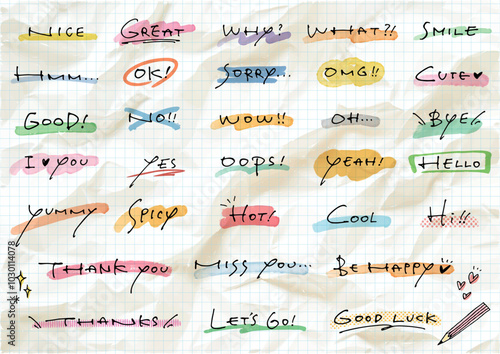 NICE GREAT WHY? WHAT?! SMILE
HMM... OK! SORRY... OMG!! CUTE♥
GOOD! NO!! WOW!! OH... \BYE/
I ♥ YOU YES OOPS! YEAH! HELLO
YUMMY SPICY HOT! COOL Hi!!
THANK YOU MISS YOU... BE HAPPY♥
\THANKS/ LET'S GO! GOOD LUCK
Adobe Stock
#1030114078